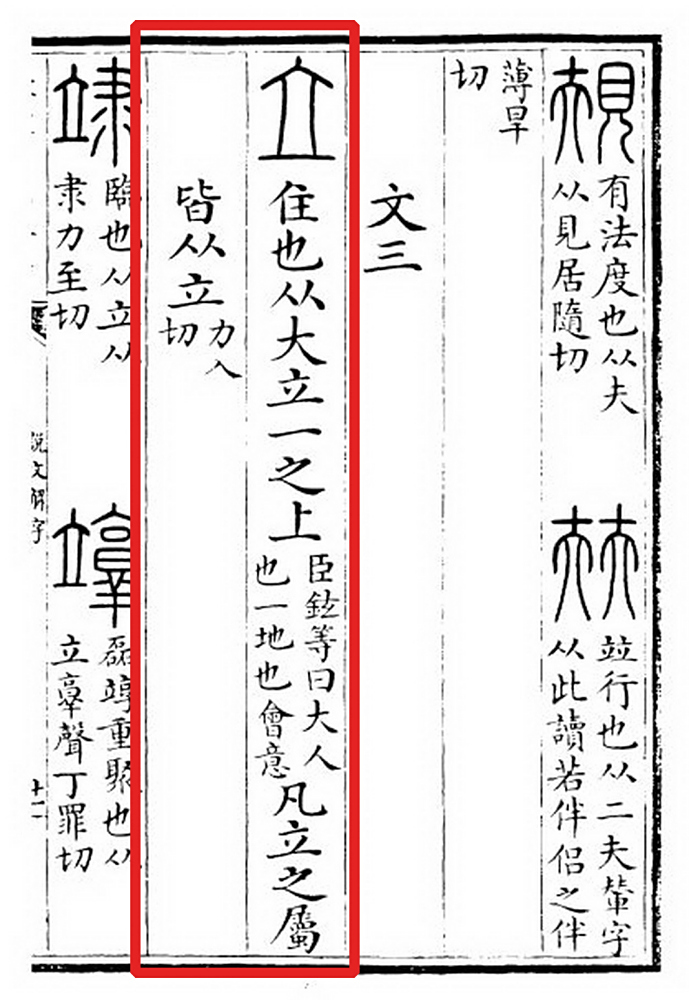 規
有法度也从夫
从見居隨切
㚘
竝行也从二夫輦字
从此讀若伴侶之伴
薄旱
切
文三
立
住也从大立一之上
臣鉉等曰大人
也一地也會意
凡立之屬
皆从立
力入
切
䇐
臨也从立从
隶力至切
䇏
磊䇏重聚也从
立𦎫聲丁罪切
說文解字